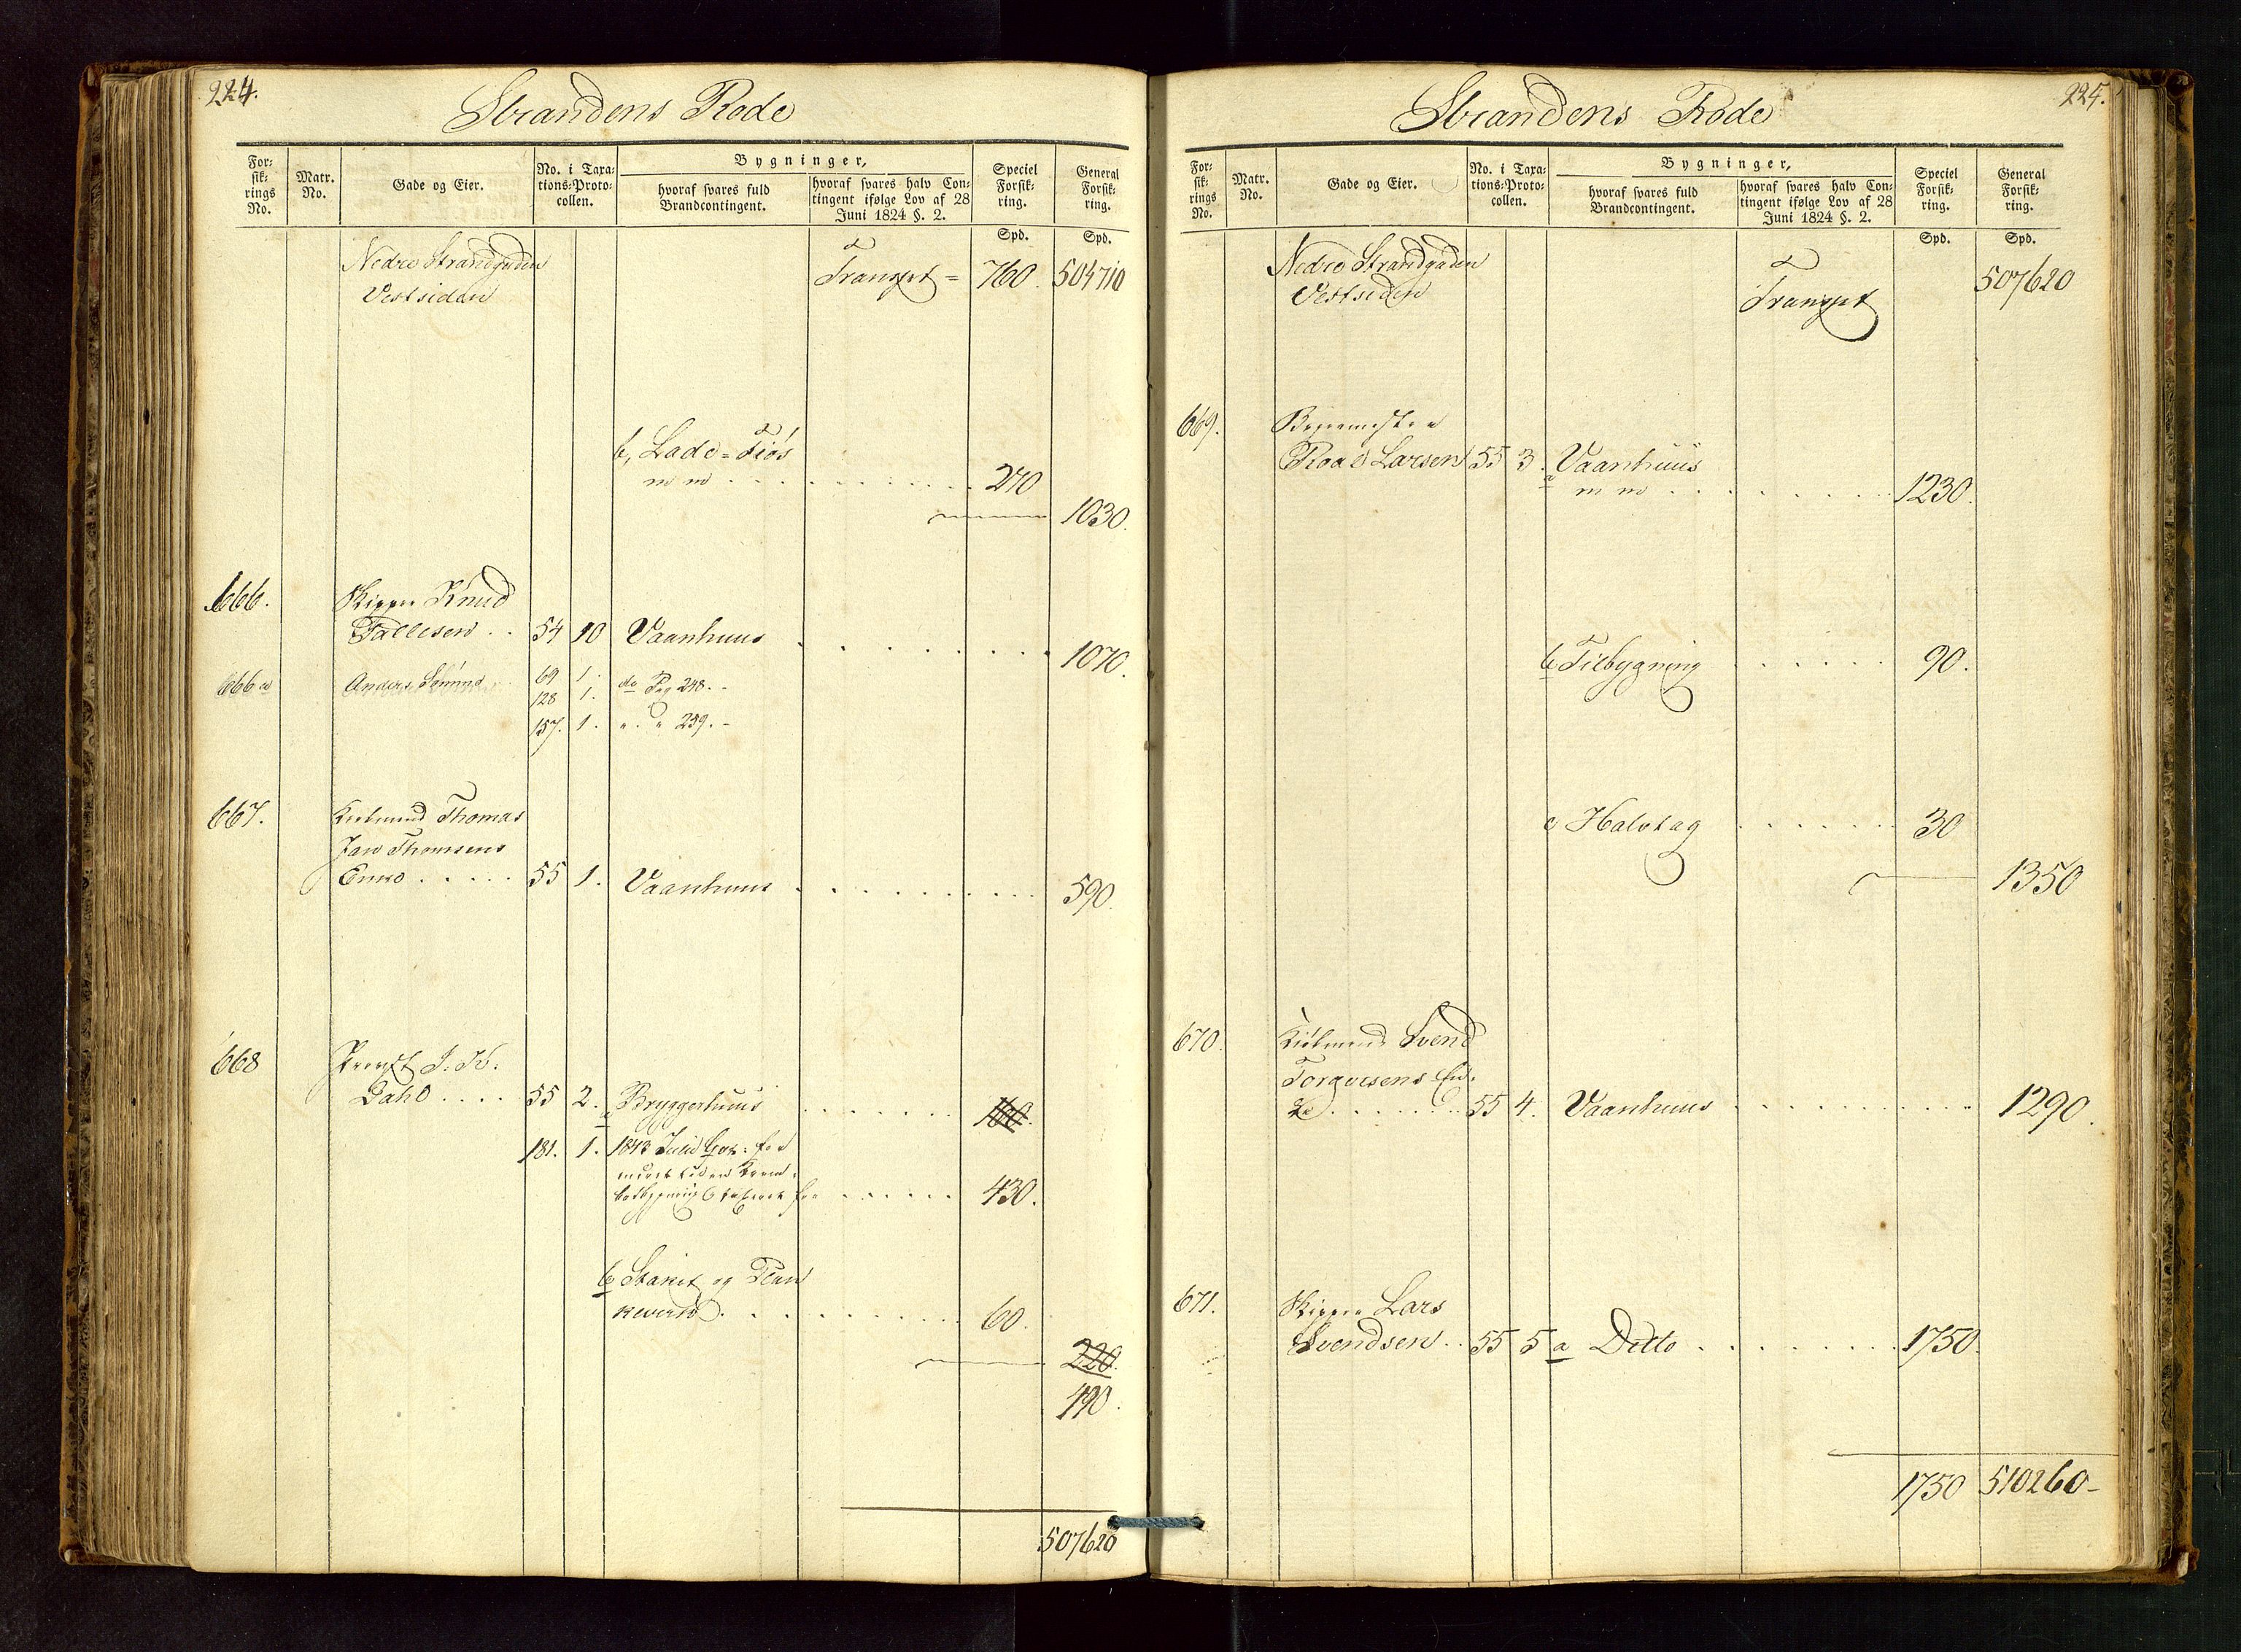 224.
Strandens Rode
For=
sik=
rings
No.
Matr.
No.
Gade og Eier.
No. i Taxa=
tions=Proto=
collen.
Bygninger,
hvoraf svares fuld
Brandcontingent.
hvoraf svares halv Con=
tingent ifølge Lov af 28
Juni 1824 §. 2.
Speciel
Forsik=
ring.
General
Forsik=
ring.
Spd. Spd.
Nedre Strandgaden
Vestsiden
Transpt = 760. 504710
b, Lade = Fiøs
m m . . . . . . . . . . 270
1030.
666. Skipper Knud
Tallesen . . 54 10 Vaanhuus . . . . . . . 1070.
666 a Anders 69 1. do Pag 248. -
128 1.
157. 1. " . " 259. -
667. Kiøbmand Thomas
Jan Thomsens
Enke . . . . . 55 1. Vaanhuus . . . . . . . . . 590.
668 Provst I. K.
Dahl . . . . 55 2. a Bryggerhuus . . . . . . . 160.
181. 1. 1843 Julii for
for . . . . . . 430.
b Stakit og Plan
keverk . . . . . . . . . . 60.
220.
490.
507620
225.
Strandens Rode
For=
sik=
rings
No.
Matr.
No.
Gade og Eier.
No. i Taxa=
tions=Proto=
collen.
Bygninger,
hvoraf svares fuld
Brandcontingent.
hvoraf svares halv Con=
tingent ifølge Lov af 28
Juni 1824 §. 2.
Speciel
Forsik=
ring.
General
Forsik=
ring.
Spd. Spd.
Nedre Strandgaden
Vestsiden
Transpt 507620
669.
Roal Larsen 55 3. a Vaanhuus
m m . . . . . . . . 1230.
b Tilbygning . . . . . . 90.
c Halvtag . . . . . . 30
1350
670. Kiøbmand Svend
Torgersens En=
ke . . . . . . . 55 4. Vaanhuus . . . . . . . . . . 1290.
671. Skipper Lars
Svendsen . . 55 5 a Ditto . . . . . . . . 1750.
1750 510260-